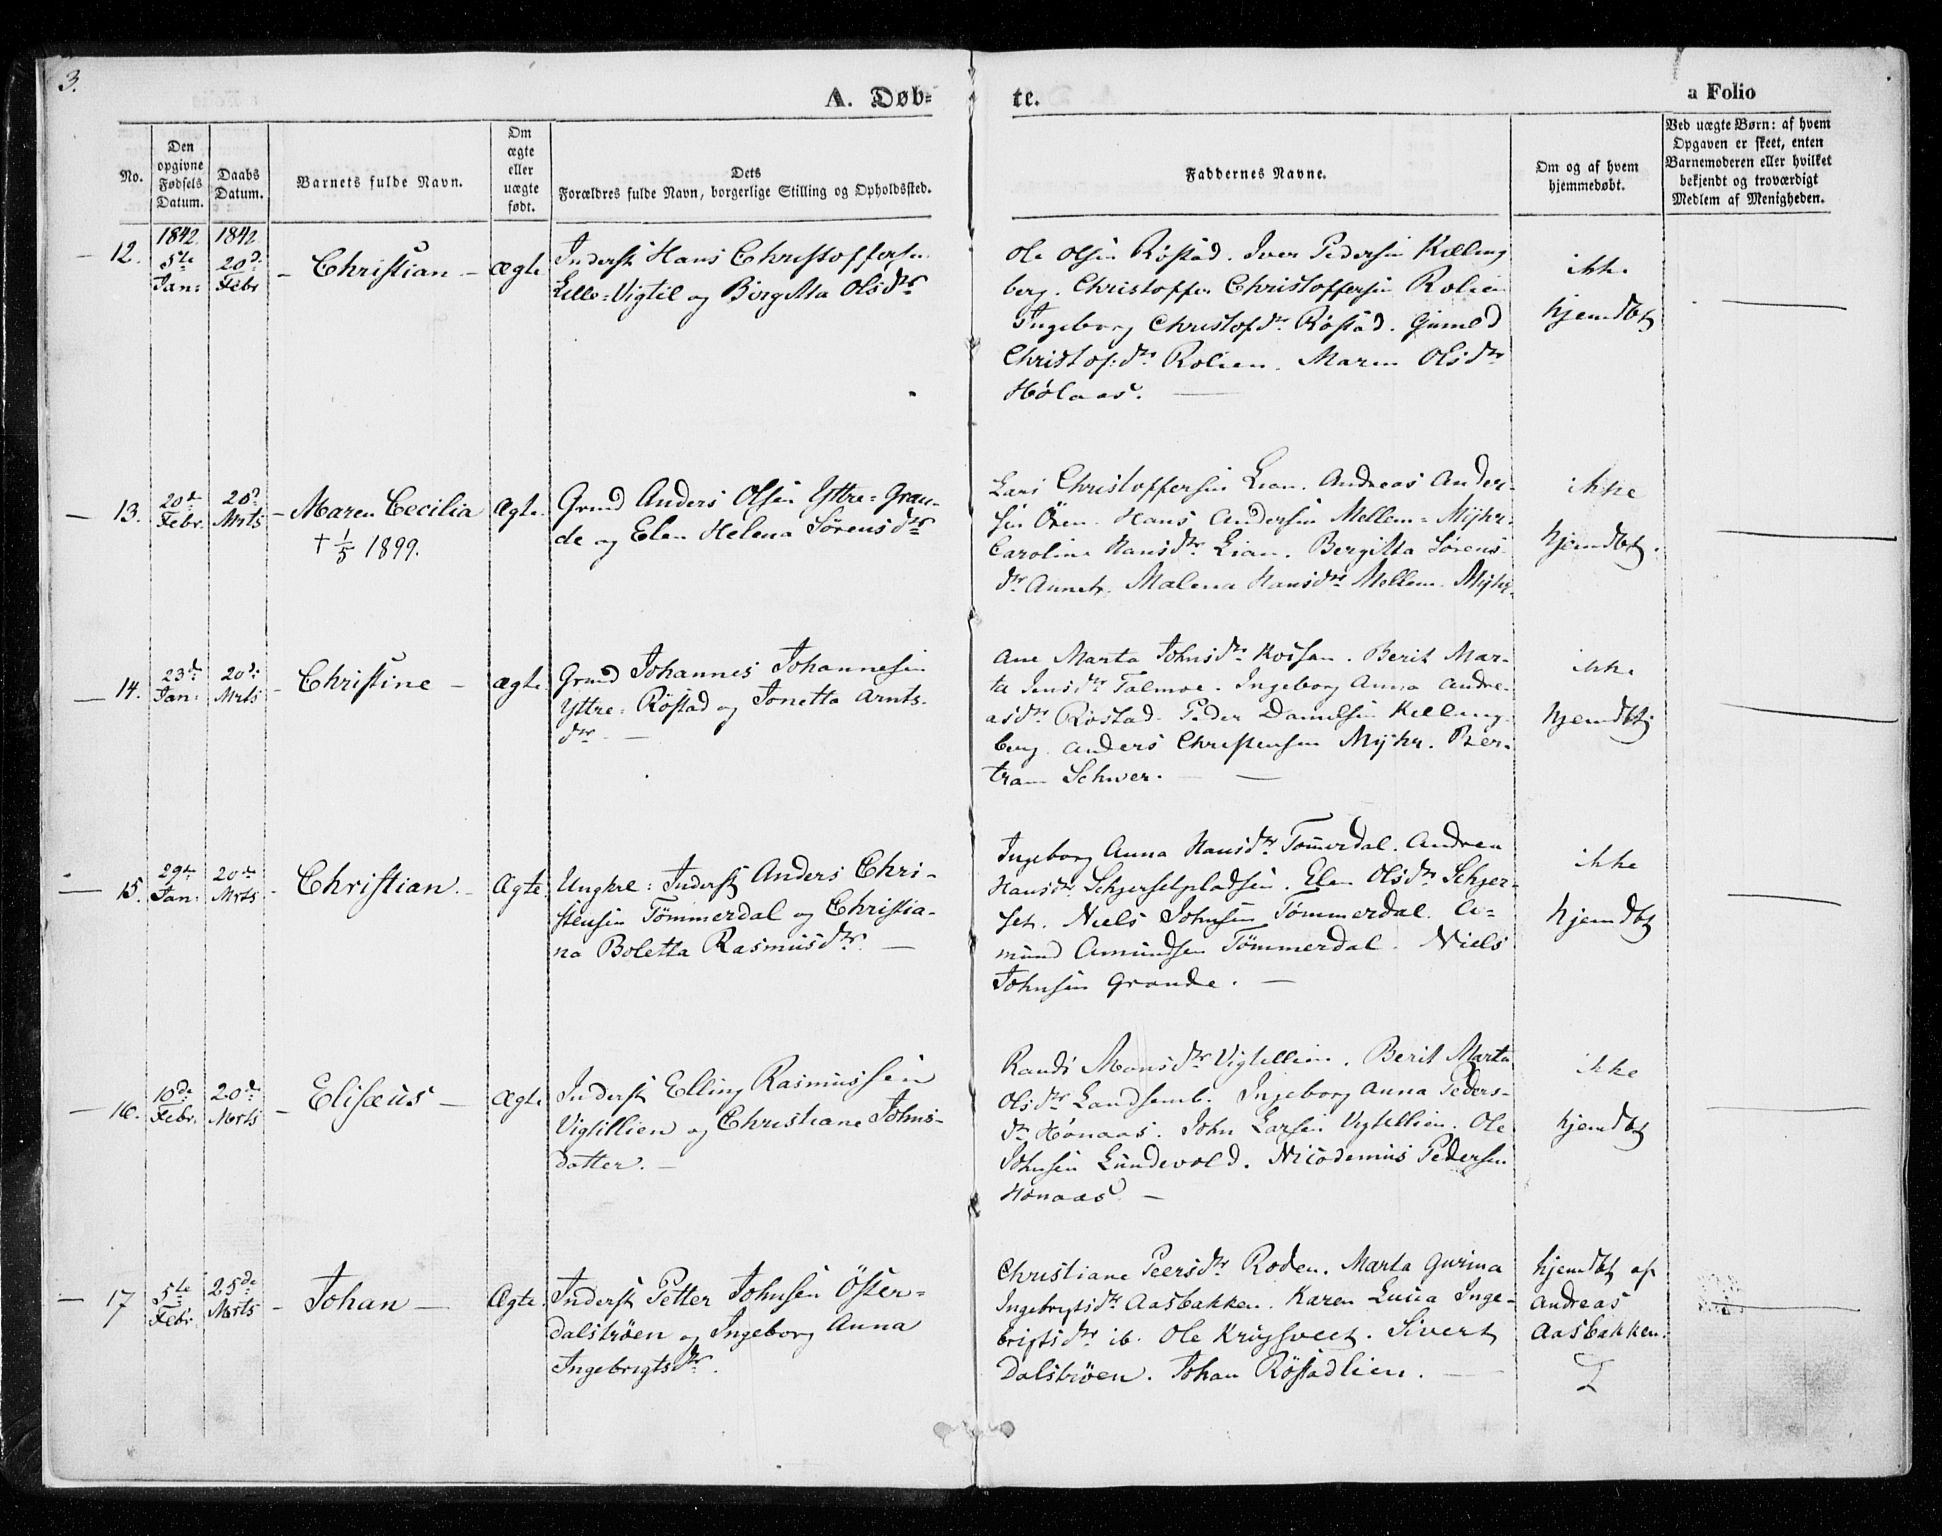 3.
A. Døb-
te.
a Folio
No.
Den opgivne Fødsels Datum.
Daabs Datum.
Barnets fulde Navn.
Om ægte eller uægte født.
Dets
Forældres fulde Navn, borgerlige Stilling og Opholdssted.
Faddernes Navne.
Om og af hvem hjemmedøbt.
Ved uægte Børn: af hvem Opgaven er skeet, enten Barnemoderen eller hvilket bekjendt og troværdigt Medlem af Menigheden.
12. 1842 5te Jan: 1842 20d. Febr - Christian - ægte
Inderst Hans Christoffersen
Lille-Vigtil og Birgitta Olsdtr
Ole Olsen Röstad. Iver Pedersen Kielling
berg. Christoffer Christoffersen Rolien
Ingeborg Christofdtr Röstad. Gunild
Christof:dtr Rolien. Maren Olsdtr
Hölaas.
ikke
hjemdbt
13. 20d. Febr. 20d. Mrts - Maren Cecilia ægte.
† 1/5 1899.
Grmd Anders Olsen Yttre-Gran-
de og Elen Helena Sörensdtr
Lars Christoffersen Lian. Andreas Ander-
sen Ören. Hans Andersen Mellem-Myhr.
Caroline Hansdtr Lian. Bergitta Sörens-
dtr Malena Hansdtr Mellem-Myhr.
ikke
hjemdbt.
14. 23d. Jan: 20d. Mrts - Christine - ægte
Grmd Johannes Johannesen
Yttre-Röstad og Jonetta Arnts-
dtr. -
Ane Marta Johnsdtr. Berit Mar-
ta Jensdtr Talmoe. Ingeborg Anna Andre-
asdtr Röstad. Peder Danielsen Kielling-
berg. Anders Christensen Myhr. Ber-
tram Schwer. -
ikke
hjemdbt
15. 29de Jan: 20de Mrts - Christian. - Ægte
Ungkrl: Inderst Anders Chri-
stensen Tömmerdal og Christia-
na Boletta Rasmusdtr. -
Ingeborg Anna Hansdtr Tömmerdal. Andrea
Hansdtr Schjersetpladsen. Elen Olsdtr Schjer-
set. Niels Johnsen Tömmerdal. A-
mund Amundsen Tömmerdal. Niels
Johnsen Grande. -
ikke
hjemdbt
16. 10de Febr. 20de Mrts - Elisæus - Ægte
Inderst Elling Rasmussen
Vigtillien og Christiane Johns-
datter. -
Randi Monsdtr Vigtillien. Berit Marta
Olsdtr Landsemb. Ingeborg Anna Peders-
dtr Hönaas. John Larsen Vigtillien. Ole
Johnsen Lundevold. Nicodemus Pedersen
Hönaas. -
ikke
hjemdbt
17 5te Febr. 25de Mrts - Johan - Ægte
Inderst Petter Johnsen Öster-
dalströen og Ingeborg Anna
Ingebrigtsdtr.
Christiane Peersdtr Roden. Marta Gurina
Ingebrigtsdtr Aasbakken. Karen Lucia Inge-
brigtsdtr ib. Ole Krigsveet. Sivert
Dalströen. Johan Röstadlien. -
hjemdbt af
Andreas
Aasbakken.